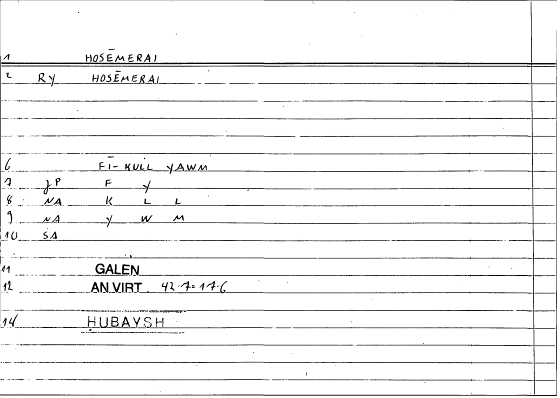 1 HOSĒMERAI
2 RY HOSĒMERAI
6 FĪ- KULL YAWM
7 JP F Y
8 NA K L L
9 NA Y W M
10 SA
11 GALEN
12 AN VIRT 42.7=17.6
14 HUBAYSH